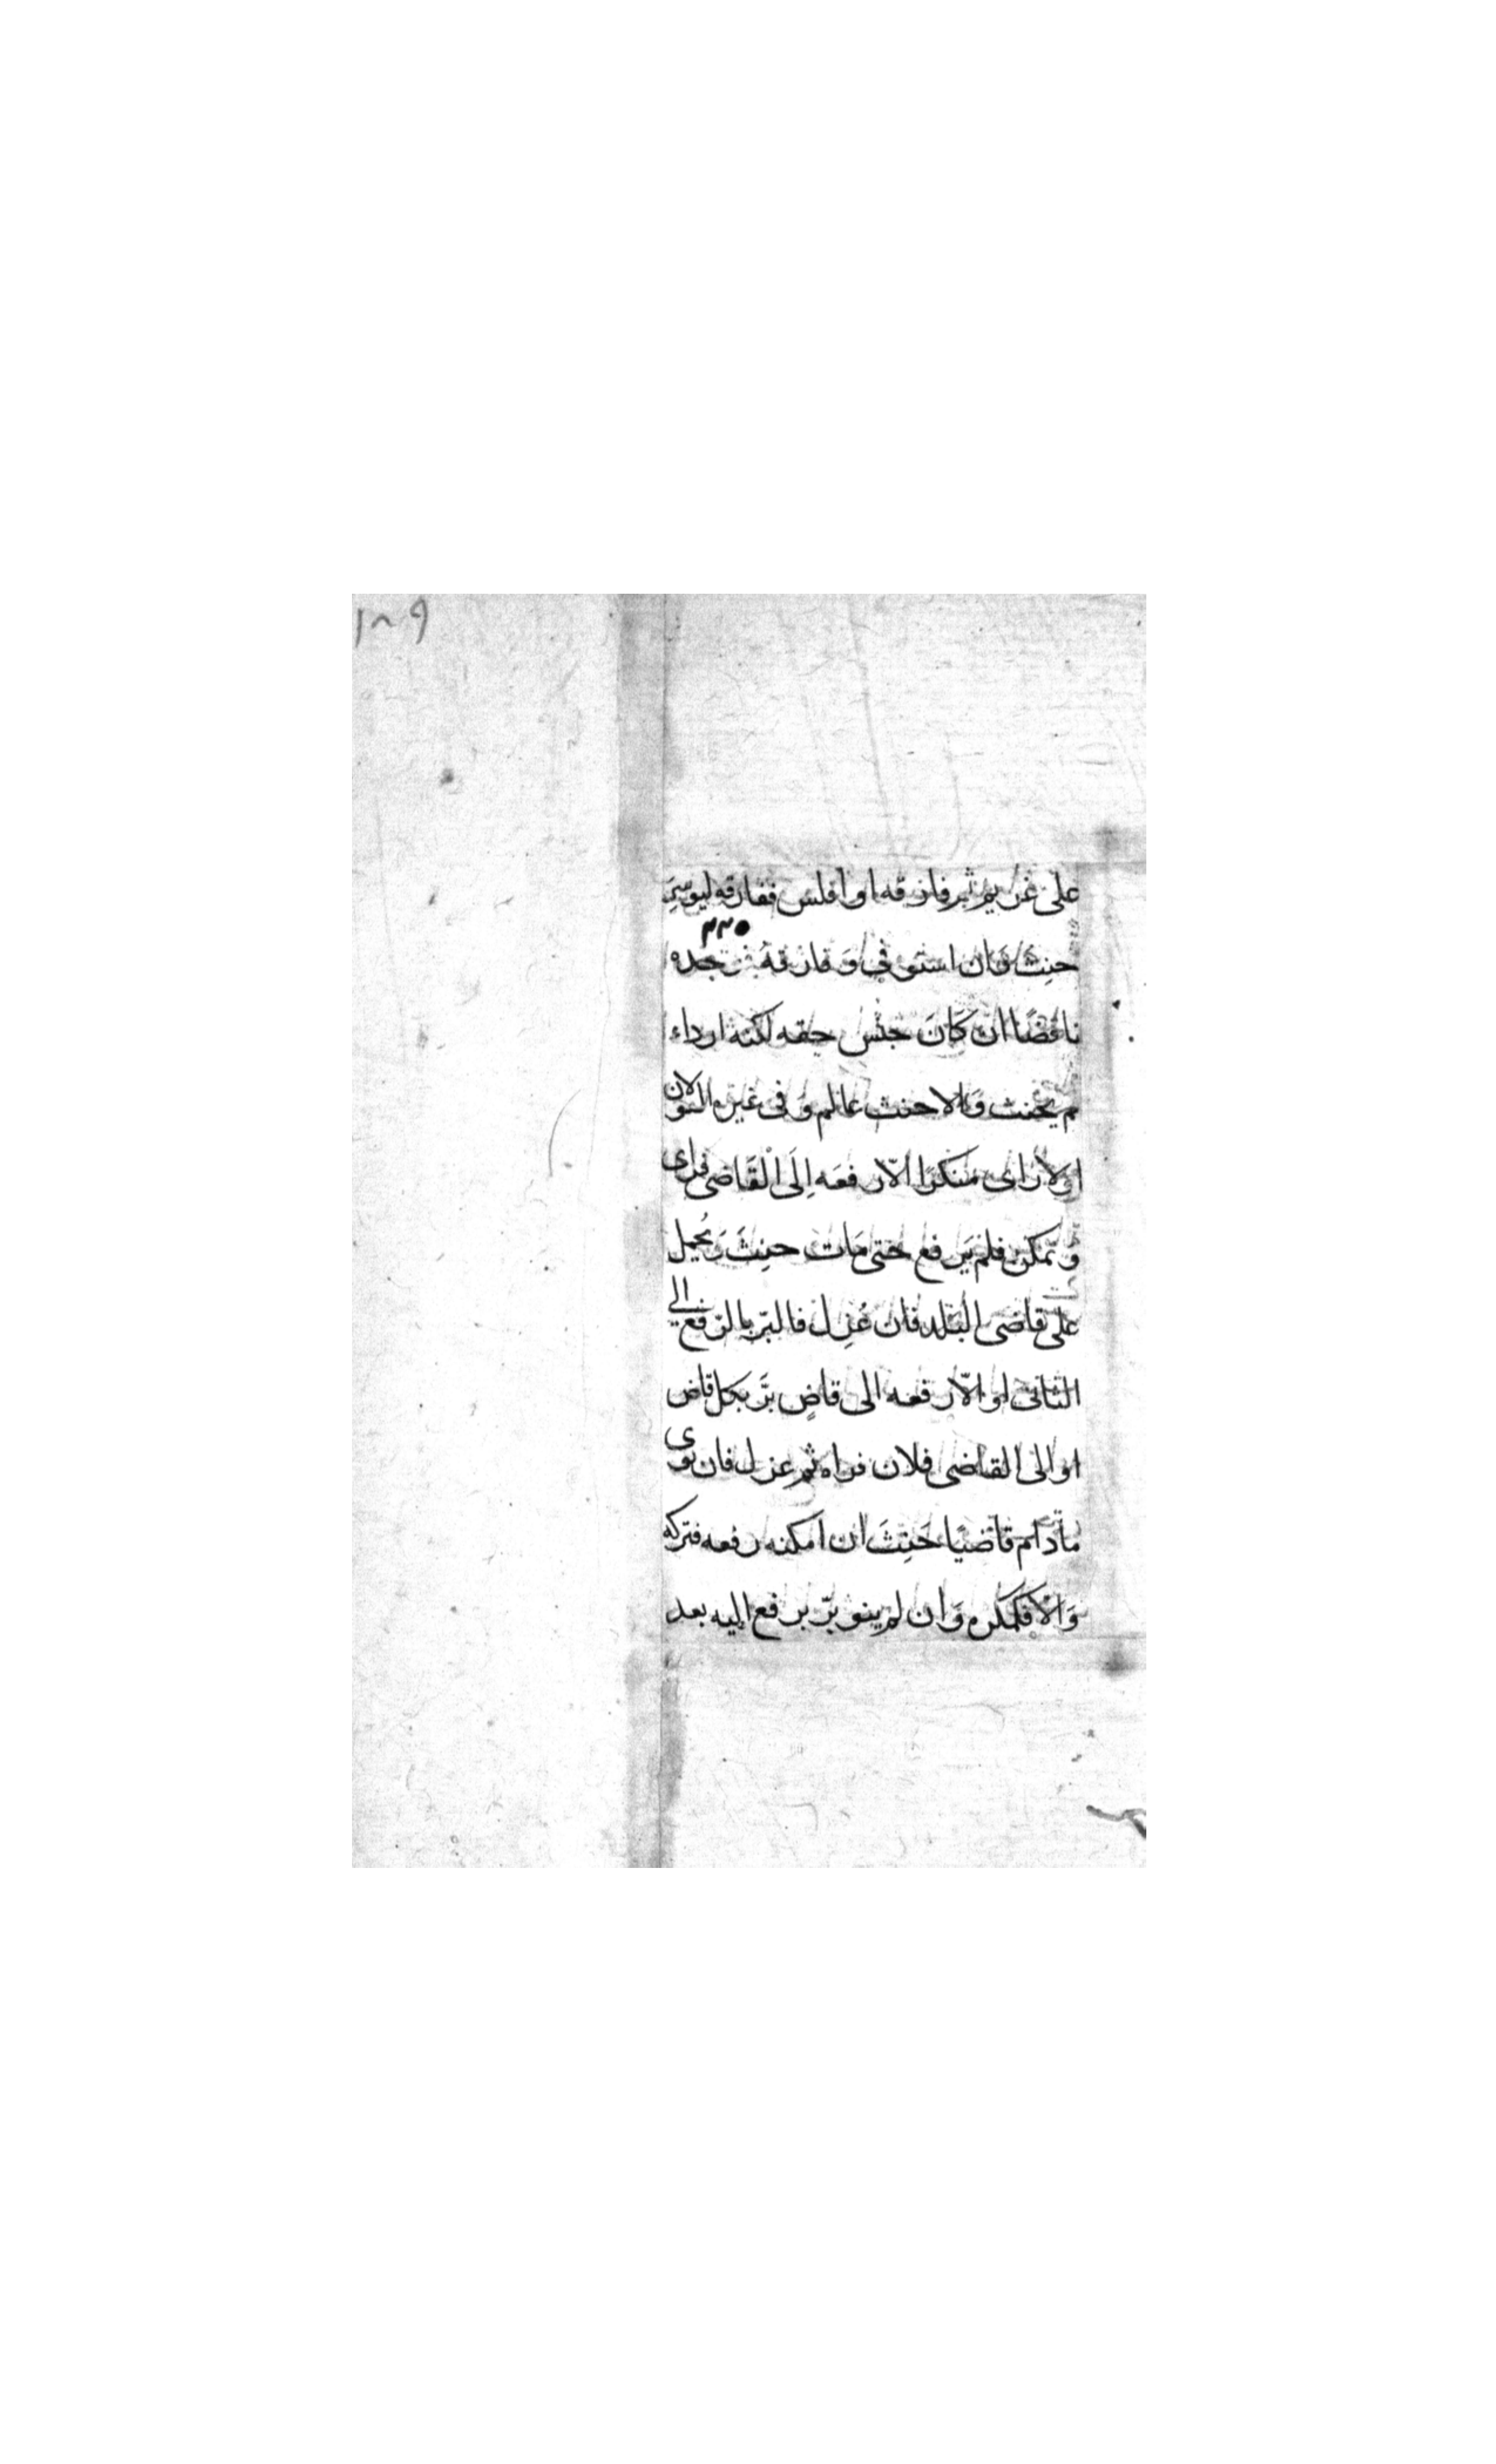 ١٨٩
على غريم ثم فارقه او افلس ففارقه ليوسر
حنث وان استوفى وفارقه فوجده
ناقصا ان كان جنس حقه لكنه ارداء
لم يحنث والا حنث عالم وفى غيره القولان
او لا راى منكرا الّا رفعه اِلَى الْقَاضى فراى
وَتمكن فلم يرفع حتى مَات حنِثَ وَيُحمل
على قاضى البلد فان عُزِل فالبرّ بالرفع الى
الثانى او الّا رفعه الى قاضٍ برَّ بكل قاض
او الى القاضى فلان فراه ثم عزل فان نوى
مادام قاضيًا حَنِثَ ان امكنه رفعه فتركه
وَالا فكمكره وَان لم ينو برّ برفع اليه بعد